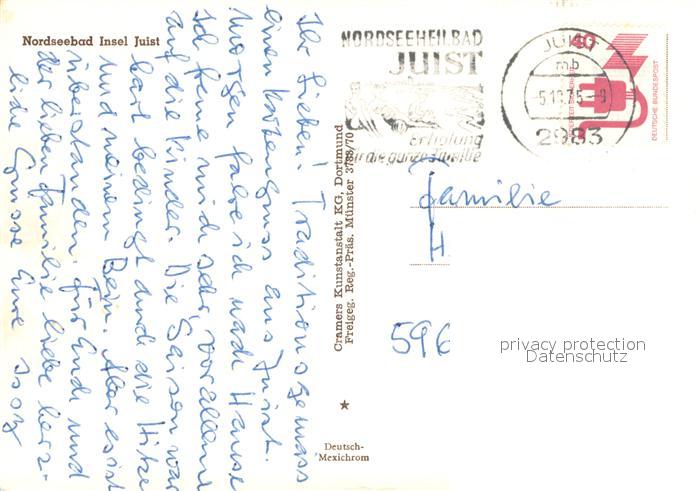 Nordseebad Insel Juist
Ihr Lieben! Traditionsgemäss
einen Kartengruss aus Juist.
Morgen fahre ich nach Hause
ich freue mich sehr, vor allem
auf die Kinder. Die Saison war
hart bedingt durch die Hitze
und meinem Bein. Aber es ist
überstanden. Für Euch und
der lieben Familie liebe herz-
liche Grüsse Eure
Cramers Kunstanstalt KG. Dortmund
Freigeg. Reg.-Präs. Münster 3788/70
Deutsch-
Mexichrom
NORDSEEHEILBAD
JUIST
Erholung
für die ganze Familie
JUIST
mb
-5.10.75-9
2983
40
DEUTSCHE BUNDESPOST
Familie
H.
596
privacy protection
Datenschutz